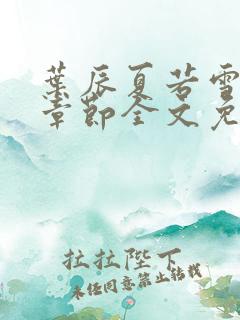 葉辰夏若雪
章節全文免
拉拉陛下
未经同意禁止转载